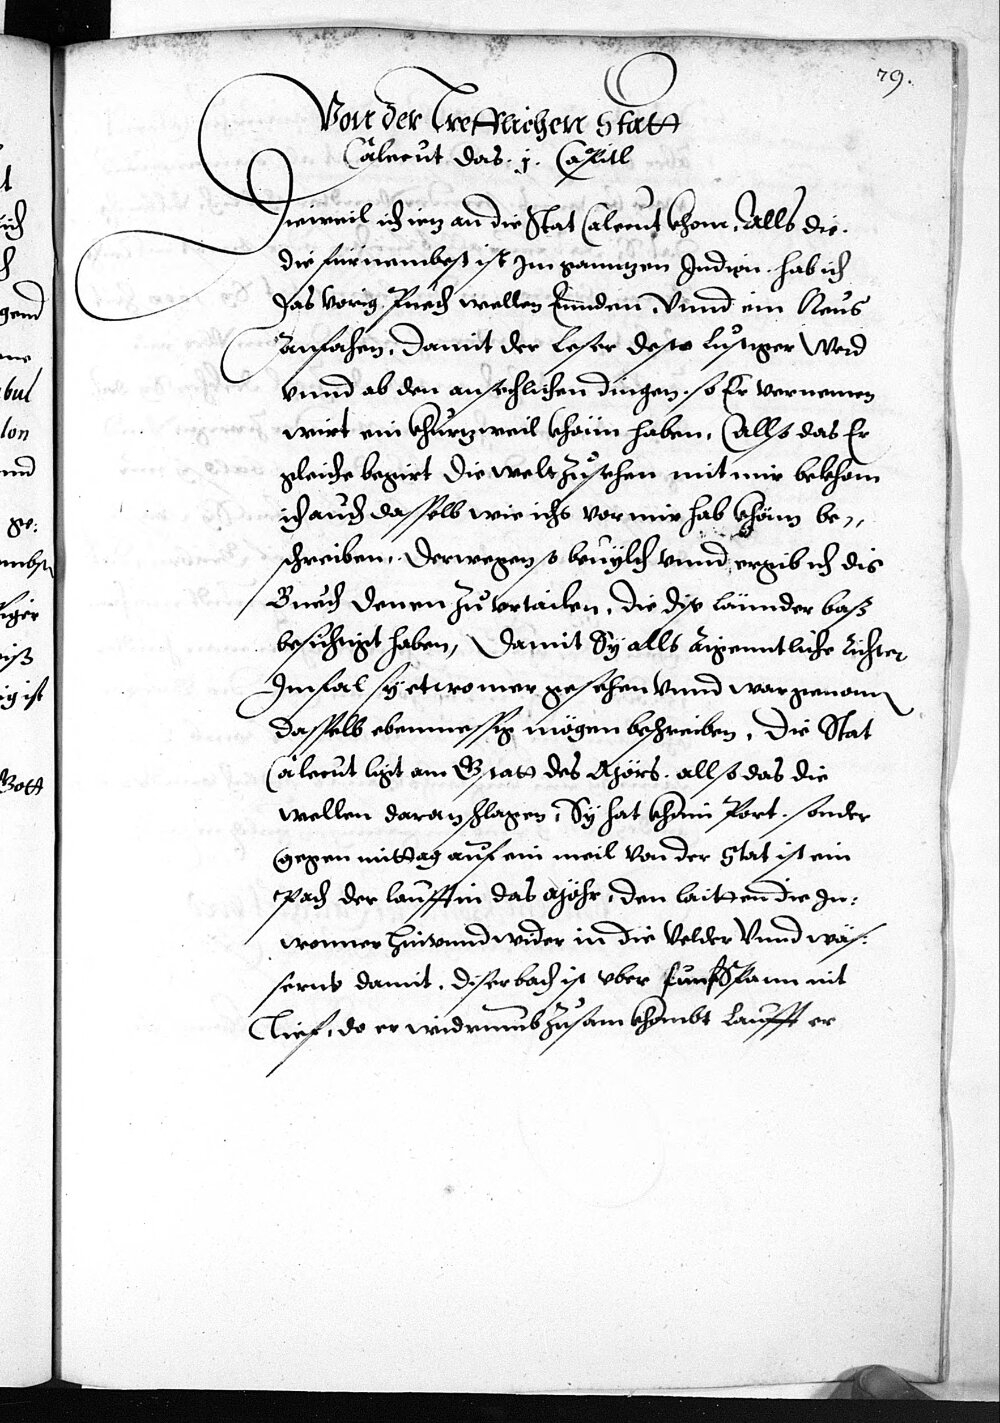 79.
Von der Trefflichen Statt
Calecut das .j. Capitl
Dieweil ich ietz an die Stat Calecut khom, Alls die
die fürnembest ist Im ganntzen Indien. hab ich
das vorig Puech wellen Ennden, Vnnd ein Neus
Anfahen, Damit der Leser dest Lustiger Werd
vnnd ab den ansechlichen dingen, so Er vernemen
wirt ein khurtzweil khöün haben, Also das Er
gleiche begirt die welt Zu sehen mit mir bekhom
ich auch dasselb wie ichs vor mir hab khönn be„
schreiben, Derwegen so beuylch vnnd ergib ich dis
Buech denen Zu vrtailen, die dise Lännder baß
besichtigt haben, Damit Sy alls Aigenntliche Richter
Im fal sy etwo mer gesehen Vnnd war genomn
dasselb ebenmessig mögen beschreiben, Die Stat
Calecut ligt am Gstatt des Mörs, allso das die
wellen daran schlagen, Sy hat khain Port, sonder
gegen mittag auf ein meil Von der Stat ist ein
Pach der laufft in das Möhr, den laitten die In:
wonner hin vnnd wider in die Velder Vnnd wäs:
serns damit, diser bach ist vber funf Spann nit
Tieff, do er widrumb Zusam khombt Laufft er
ich
gend
bul
lon
nnd
ge:
iger
ig ist
Gott